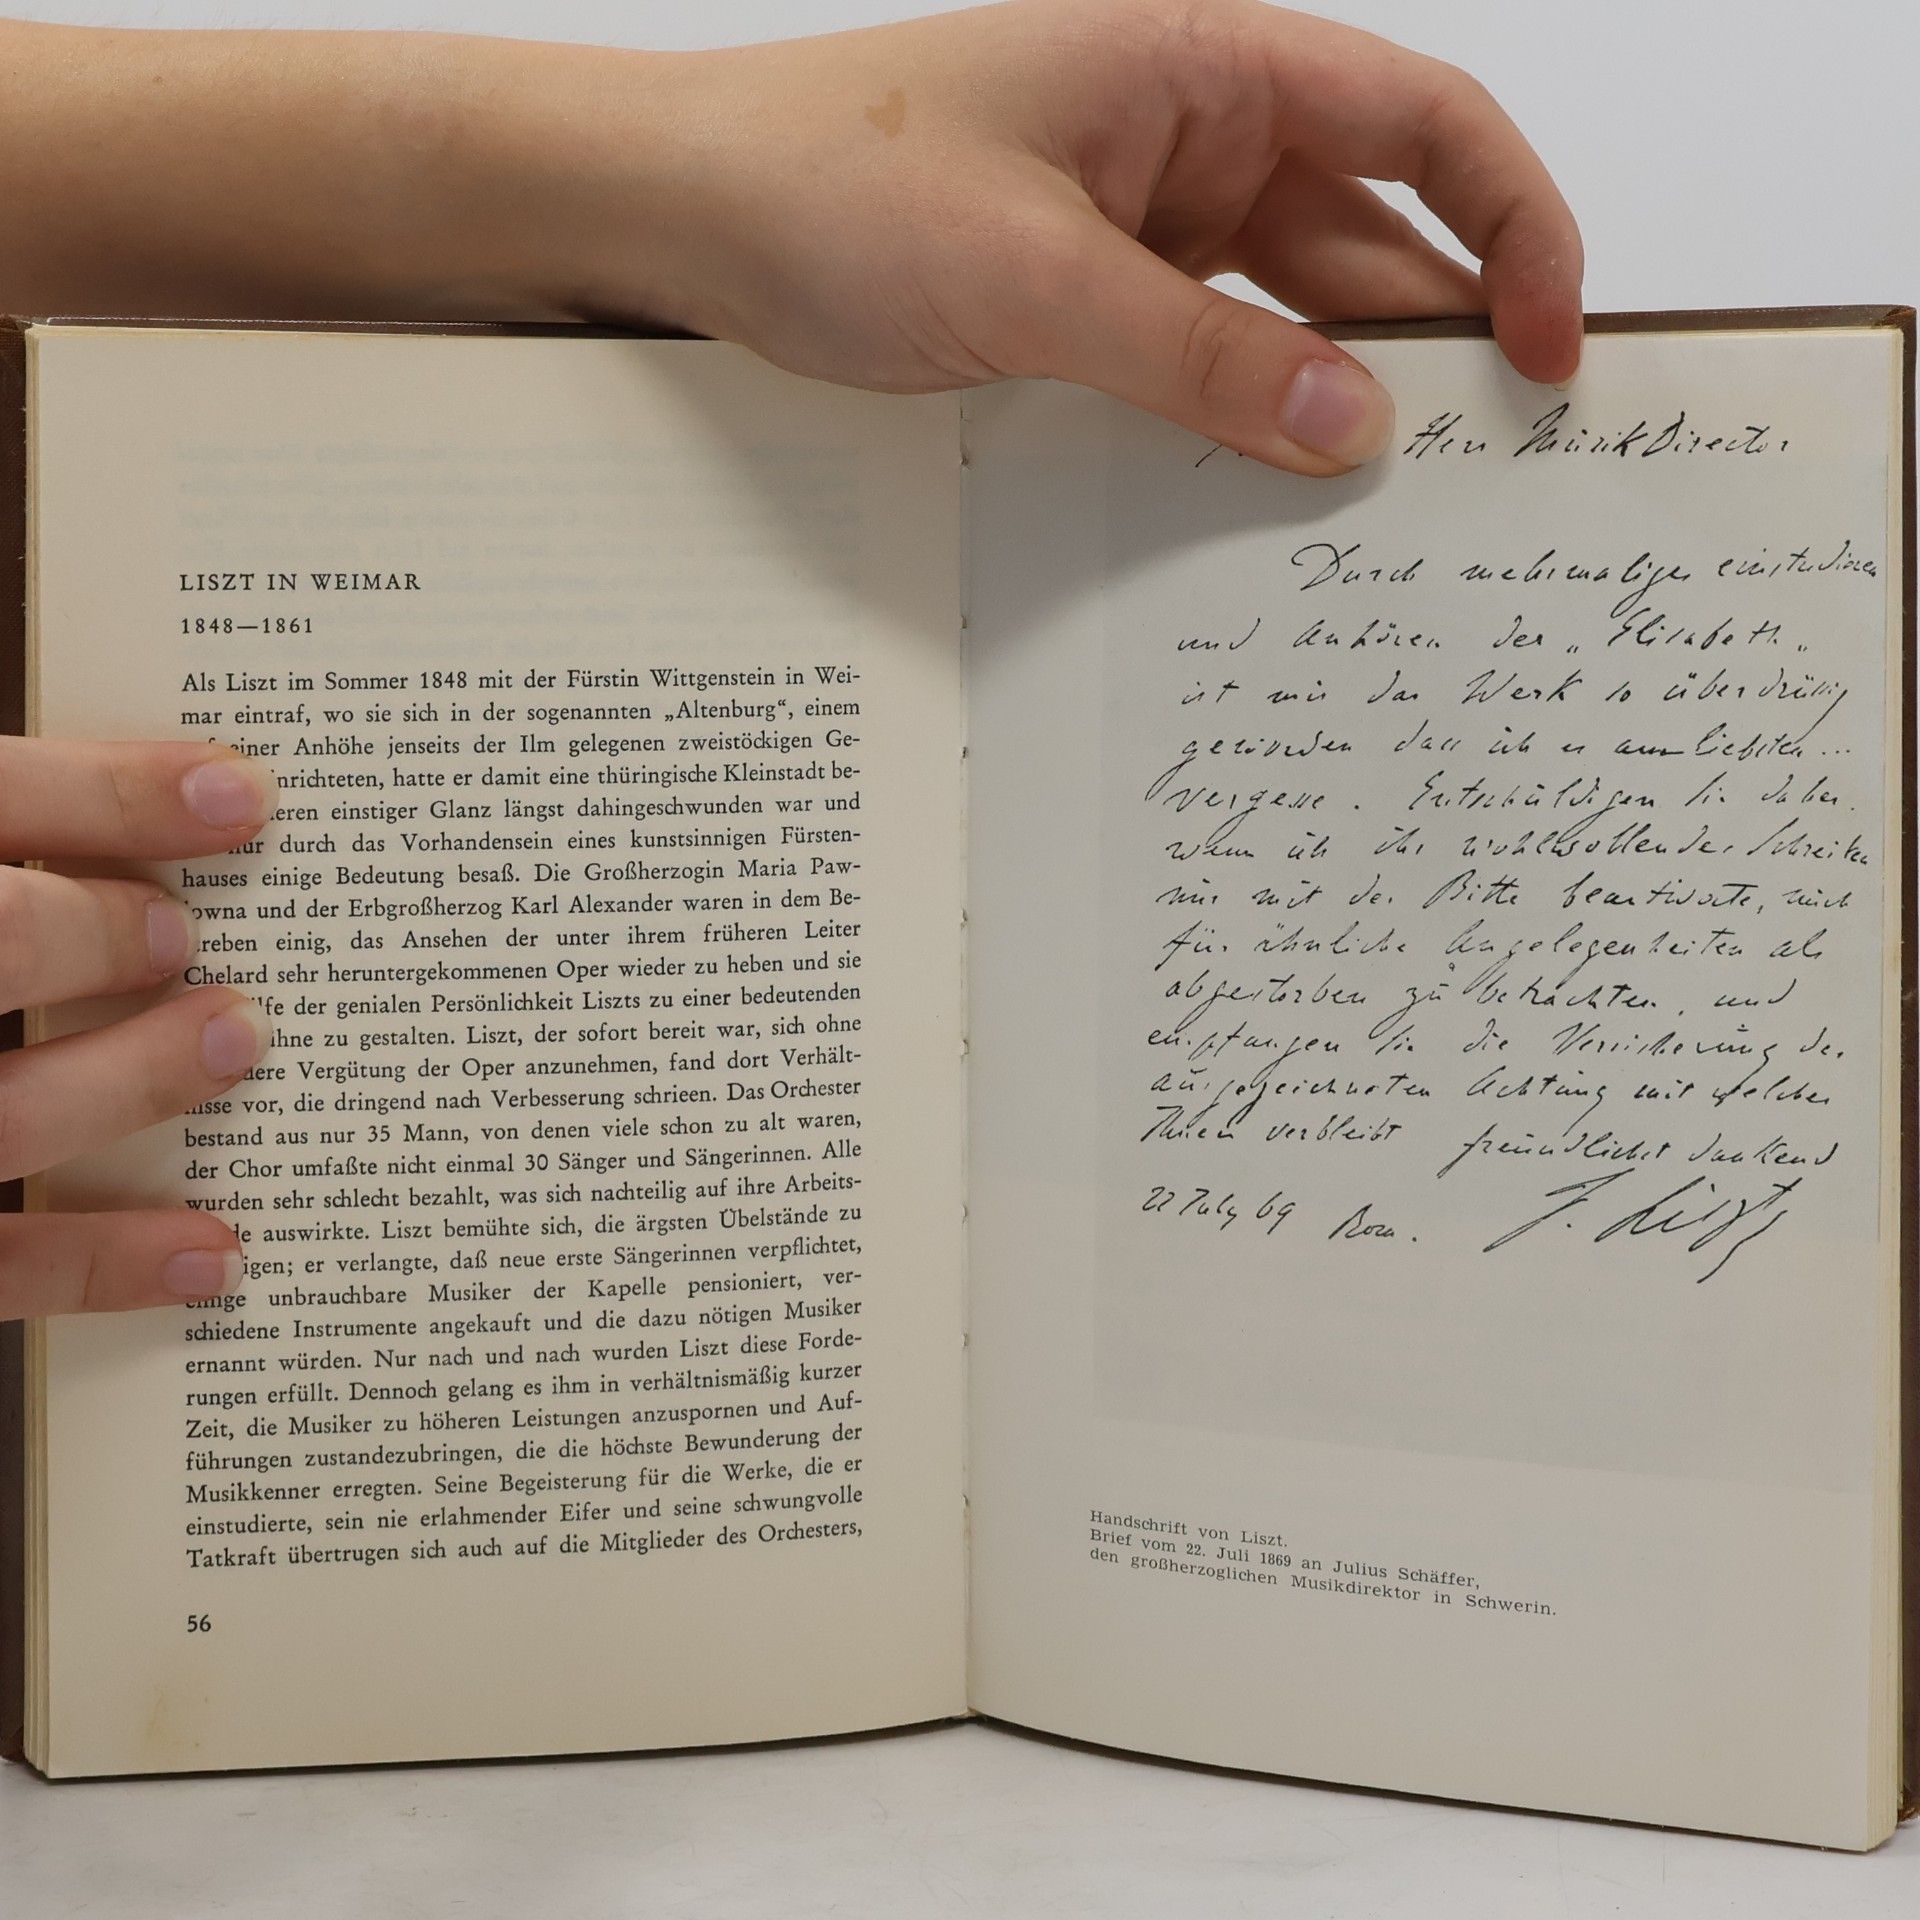 LISZT IN WEIMAR
1848—1861
Als Liszt im Sommer 1848 mit der Fürstin Wittgenstein in Wei-
mar eintraf, wo sie sich in der sogenannten „Altenburg“, einem
einer Anhöhe jenseits der Ilm gelegenen zweistöckigen Ge-
nrichteten, hatte er damit eine thüringische Kleinstadt be-
eren einstiger Glanz längst dahingeschwunden war und
nur durch das Vorhandensein eines kunstsinnigen Fürsten-
hauses einige Bedeutung besaß. Die Großherzogin Maria Paw-
lowna und der Erbgroßherzog Karl Alexander waren in dem Be-
treben einig, das Ansehen der unter ihrem früheren Leiter
Chelard sehr heruntergekommenen Oper wieder zu heben und sie
ilfe der genialen Persönlichkeit Liszts zu einer bedeutenden
ihne zu gestalten. Liszt, der sofort bereit war, sich ohne
dere Vergütung der Oper anzunehmen, fand dort Verhält-
nisse vor, die dringend nach Verbesserung schrieen. Das Orchester
bestand aus nur 35 Mann, von denen viele schon zu alt waren,
der Chor umfaßte nicht einmal 30 Sänger und Sängerinnen. Alle
wurden sehr schlecht bezahlt, was sich nachteilig auf ihre Arbeits-
de auswirkte. Liszt bemühte sich, die ärgsten Übelstände zu
igen; er verlangte, daß neue erste Sängerinnen verpflichtet,
einige unbrauchbare Musiker der Kapelle pensioniert, ver-
schiedene Instrumente angekauft und die dazu nötigen Musiker
ernannt würden. Nur nach und nach wurden Liszt diese Forde-
rungen erfüllt. Dennoch gelang es ihm in verhältnismäßig kurzer
Zeit, die Musiker zu höheren Leistungen anzuspornen und Auf-
führungen zustandezubringen, die die höchste Bewunderung der
Musikkenner erregten. Seine Begeisterung für die Werke, die er
einstudierte, sein nie erlahmender Eifer und seine schwungvolle
Tatkraft übertrugen sich auch auf die Mitglieder des Orchesters,
56
Herr MusikDirector
Durch mehrmaliges einstudieren
und Anhören der „Elisabeth„
ist mir das Werk so überdrüßig
geworden dass ich es am liebsten ...
vergesse. Entschuldigen Sie daher,
wenn ich ihr wohlwollendes Schreiben
nur mit der Bitte beantworte, mich
für ähnliche Angelegenheiten als
abgestorben zu betrachten, und
empfangen Sie die Versicherung der
ausgezeichneten Achtung mit welcher
Ihnen verbleibt freundlichst dankend
22 July 69 Rom. F. Liszt
Handschrift von Liszt.
Brief vom 22. Juli 1869 an Julius Schäffer,
den großherzoglichen Musikdirektor in Schwerin.